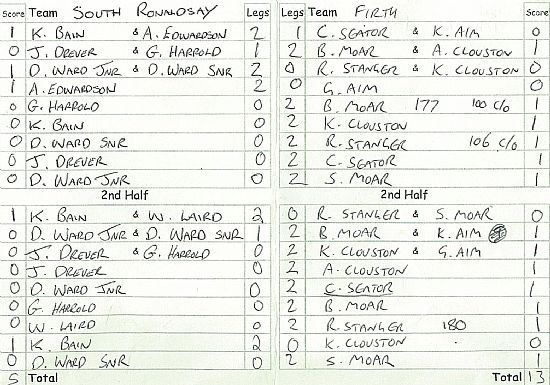 Score Team SOUTH RONALDSAY Legs Legs Team FIRTH Score
1 K. BAIN & A. EDWARDSON 2 1 C. SEATOR & K. AIM 0
0 J. DREVER & G. HARROLD 1 2 B. MOAR & A. CLOUSTON 1
1 D. WARD JNR & D. WARD SNR 2 0 R. STANGER & K. CLOUSTON 0
1 A. EDWARDSON 2 0 G. AIM 0
0 G. HARROLD 0 2 B. MOAR 177 100 C/O 1
0 K. BAIN 0 2 K. CLOUSTON 1
0 D. WARD SNR 0 2 R. STANGER 106 C/O 1
0 J. DREVER 0 2 C. SEATOR 1
0 D. WARD JNR 0 2 S. MOAR 1
2nd Half 2nd Half
1 K. BAIN & W. LAIRD 2 0 R. STANGER & S. MOAR 0
0 D. WARD JNR & D. WARD SNR 1 2 B. MOAR & K. AIM 1
0 J. DREVER & G. HARROLD 0 2 K. CLOUSTON & G. AIM 1
0 J. DREVER 0 2 A. CLOUSTON 1
0 D. WARD JNR 0 2 C. SEATOR 1
0 G. HARROLD 0 2 B. MOAR 1
0 W. LAIRD 0 2 R. STANGER 180 1
1 K. BAIN 2 0 K. CLOUSTON 0
0 D. WARD SNR 0 2 S. MOAR 1
5 Total Total 13